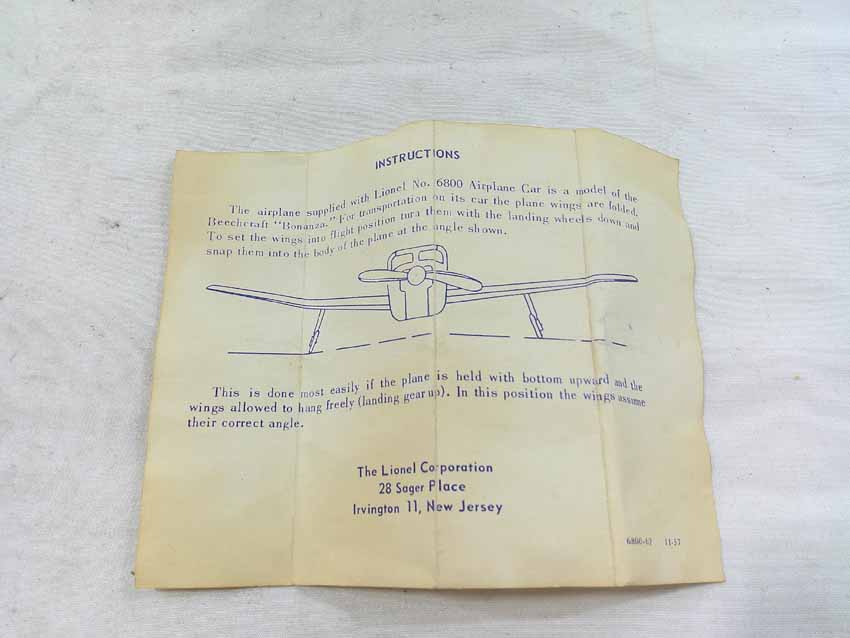 INSTRUCTIONS
The airplane supplied with Lionel No. 6800 Airplane Car is a model of the
Beechcraft "Bonanza." For transportation on its car the plane wings are folded.
To set the wings into flight position turn them with the landing wheels down and
snap them into the body of the plane at the angle shown.
This is done most easily if the plane is held with bottom upward and the
wings allowed to hang freely (landing gear up). In this position the wings assume
their correct angle.
The Lionel Corporation
28 Sager Place
Irvington 11, New Jersey
6800-62 11-57